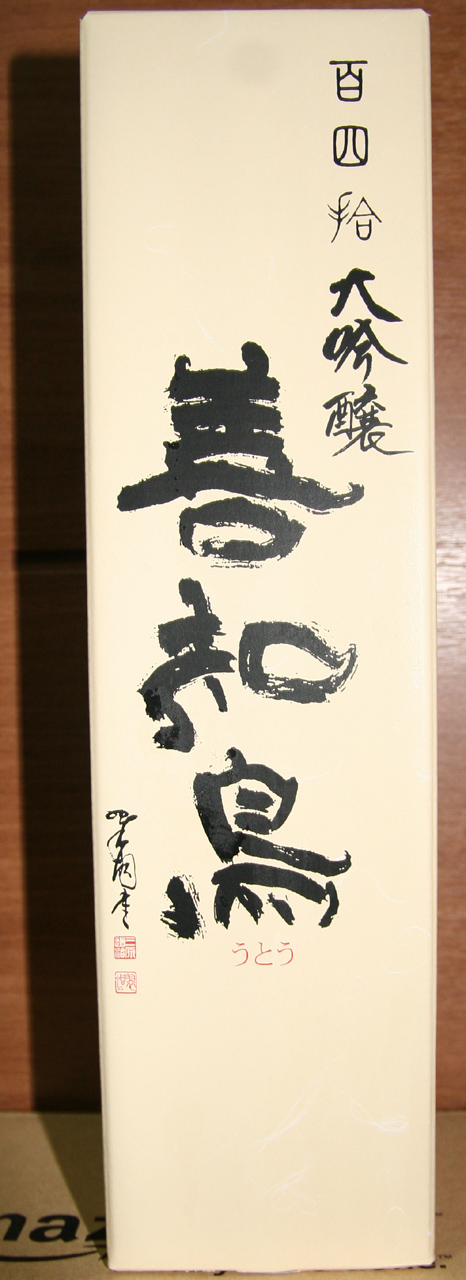 百四拾
大吟醸
善知鳥
うとう